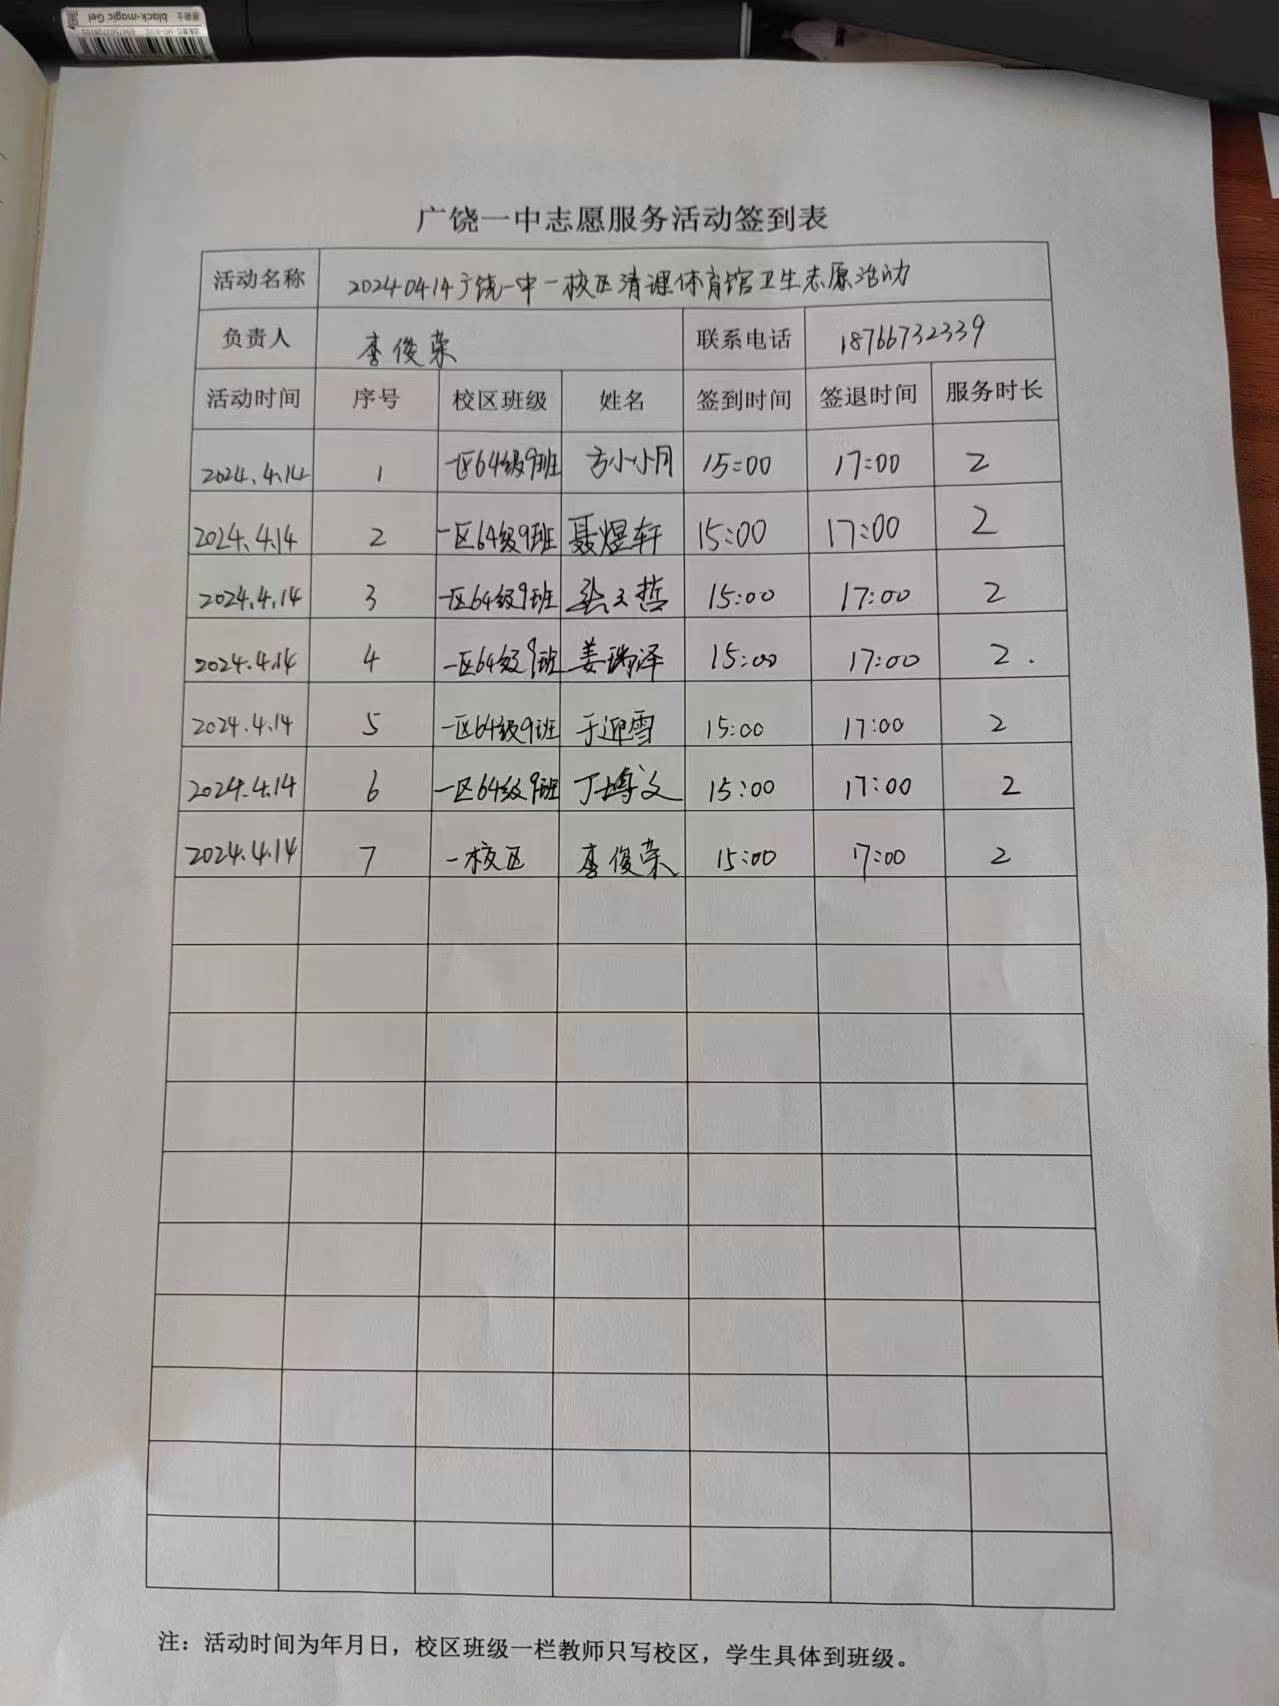 black-magic Gel
广饶一中志愿服务活动签到表
活动名称 20240414广饶一中一校区清理体育馆卫生志愿活动
负责人 李俊荣 联系电话 18766732339
活动时间 序号 校区班级 姓名 签到时间 签退时间 服务时长
2024.4.14 1 一区64级9班 方小小月 15:00 17:00 2
2024.4.14 2 一区64级9班 聂煜轩 15:00 17:00 2
2024.4.14 3 一区64级9班 文哲 15:00 17:00 2
2024.4.14 4 一区64级9班 姜瑞泽 15:00 17:00 2.
2024.4.14 5 一区64级9班 于迎雪 15:00 17:00 2
2024.4.14 6 一区64级9班 丁博文 15:00 17:00 2
2024.4.14 7 一校区 李俊荣 15:00 17:00 2
注：活动时间为年月日，校区班级一栏教师只写校区，学生具体到班级。